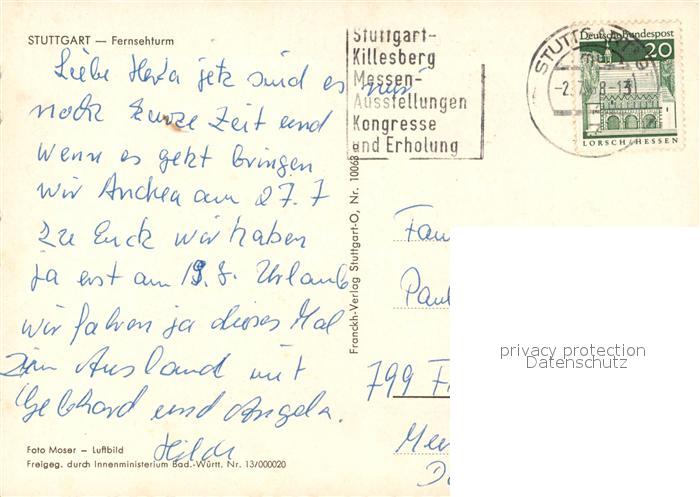 STUTTGART — Fernsehturm
Stuttgart-
Killesberg
Messen-
Ausstellungen
Kongresse
und Erholung
STUTTGART
-2.7.68-13
Deutsche Bundespost
20
LORSCH/HESSEN
Liebe Herta jetz sind es nur
noch kurze Zeit und
wenn es geht bringen
wir Andrea am 27.7
zu Euch wir haben
ja erst am 19.8. Urlaub
wir fahren ja dieses Mal
ins Ausland mit
Gebhard und Angela.
Hilde
Franckh-Verlag Stuttgart-O, Nr. 10063
Fam
Paul
799 F
Foto Moser – Luftbild
Freigeg. durch Innenministerium Bad.-Württ. Nr. 13/000020
privacy protection
Datenschutz